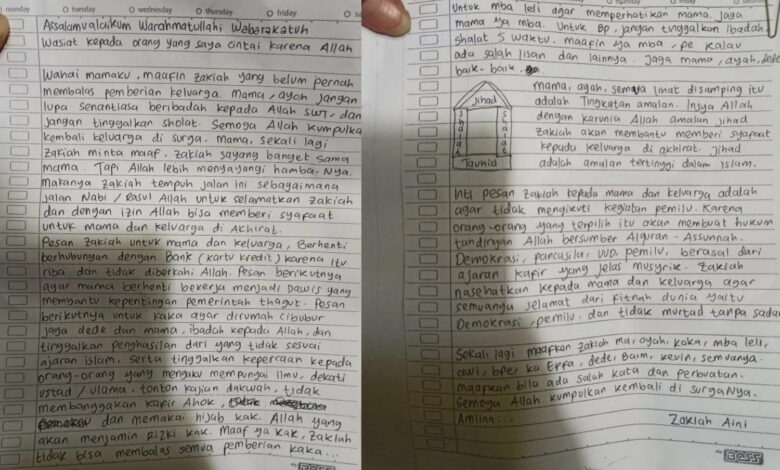 monday
tuesday
wednesday
thursday
friday
Assalamualaikum Warahmatullahi Wabarakatuh
Wasiat kepada orang yang saya cintai karena Allah
Wahai mamaku, maafin zakiah yang belum pernah
membalas pemberian keluarga. Mama, ayah jangan
lupa senantiasa beribadah kepada Allah swt, dan
jangan tinggalkan sholat. Semoga Allah kumpulkan
kembali keluarga di surga. mama, sekali lagi
zakiah minta maaf, zakiah sayang banget sama
mama. Tapi Allah lebih menyayangi hamba-Nya.
makanya zakiah tempuh jalan ini sebagaimana
jalan Nabi / Rasul Allah untuk selamatkan zakiah
dan dengan izin Allah bisa memberi syafaat
untuk mama dan keluarga di Akhirat.
Pesan zakiah untuk mama dan keluarga, Berhenti
berhubungan dengan Bank (kartu kredit) karena itu
riba dan tidak diberkahi Allah. Pesan berikutnya
agar mama berhenti bekerja menjadi Dawis yang
membantu kepentingan pemerintah thagut. Pesan
berikutnya untuk kaka agar dirumah cibubur
jaga dede dan mama, ibadah kepada Allah, dan
tinggalkan penghasilan dari yang tidak sesuai
ajaran islam. serta tinggalkan kepercaan kepada
orang-orang yang mengaku mempunyai ilmu, dekati
ustad / ulama, tonton kajian dakwah, tidak
membanggakan kafir Ahok,
dan memakai hijab kak. Allah yang
akan menjamin Rizki kak. maaf ya kak, zakiah
tidak bisa membalas semua pemberian kaka...
BOSS
thursday
friday
untuk mba leli agar memperhatikan mama. Jaga
mama ya mba. Untuk Bp, jangan tinggalkan ibadah
shalat 5 waktu. maafin ya mba, pe kalau
ada salah lisan dan lainnya. Jaga mama, ayah, dede
baik-baik.
mama, ayah, semua lihat disamping itu
adalah Tingkatan amalan. Insya Allah
dengan karunia Allah amalan jihad
zakiah akan membantu memberi syafaat
kepada keluarga di akhirat. Jihad
adalah amalan tertinggi dalam Islam.
Jihad
shalat
shalat
Tauhid
Inti pesan zakiah kepada mama dan keluarga adalah
agar tidak mengikuti kegiatan pemilu. Karena
orang-orang yang terpilih itu akan membuat hukum
tandingan Allah bersumber Alquran - Assunnah.
Demokrasi, pancasila, UUD, pemilu, berasal dari
ajaran kafir yang jelas musyrik. Zakiah
nasehatkan kepada mama dan keluarga agar
semuanya selamat dari fitnah dunia yaitu
Demokrasi, pemilu, dan tidak murtad tanpa sadar
Sekali lagi maafkan zakiah ma, ayah, kaka, mba leli,
awi, bpee ka Effa, dede, Baim, kevin, semuanya.
maafkan bila ada salah kata dan perbuatan.
Semoga Allah kumpulkan kembali di surgaNya.
Amiinn...
Zakiah Aini
my BOSS